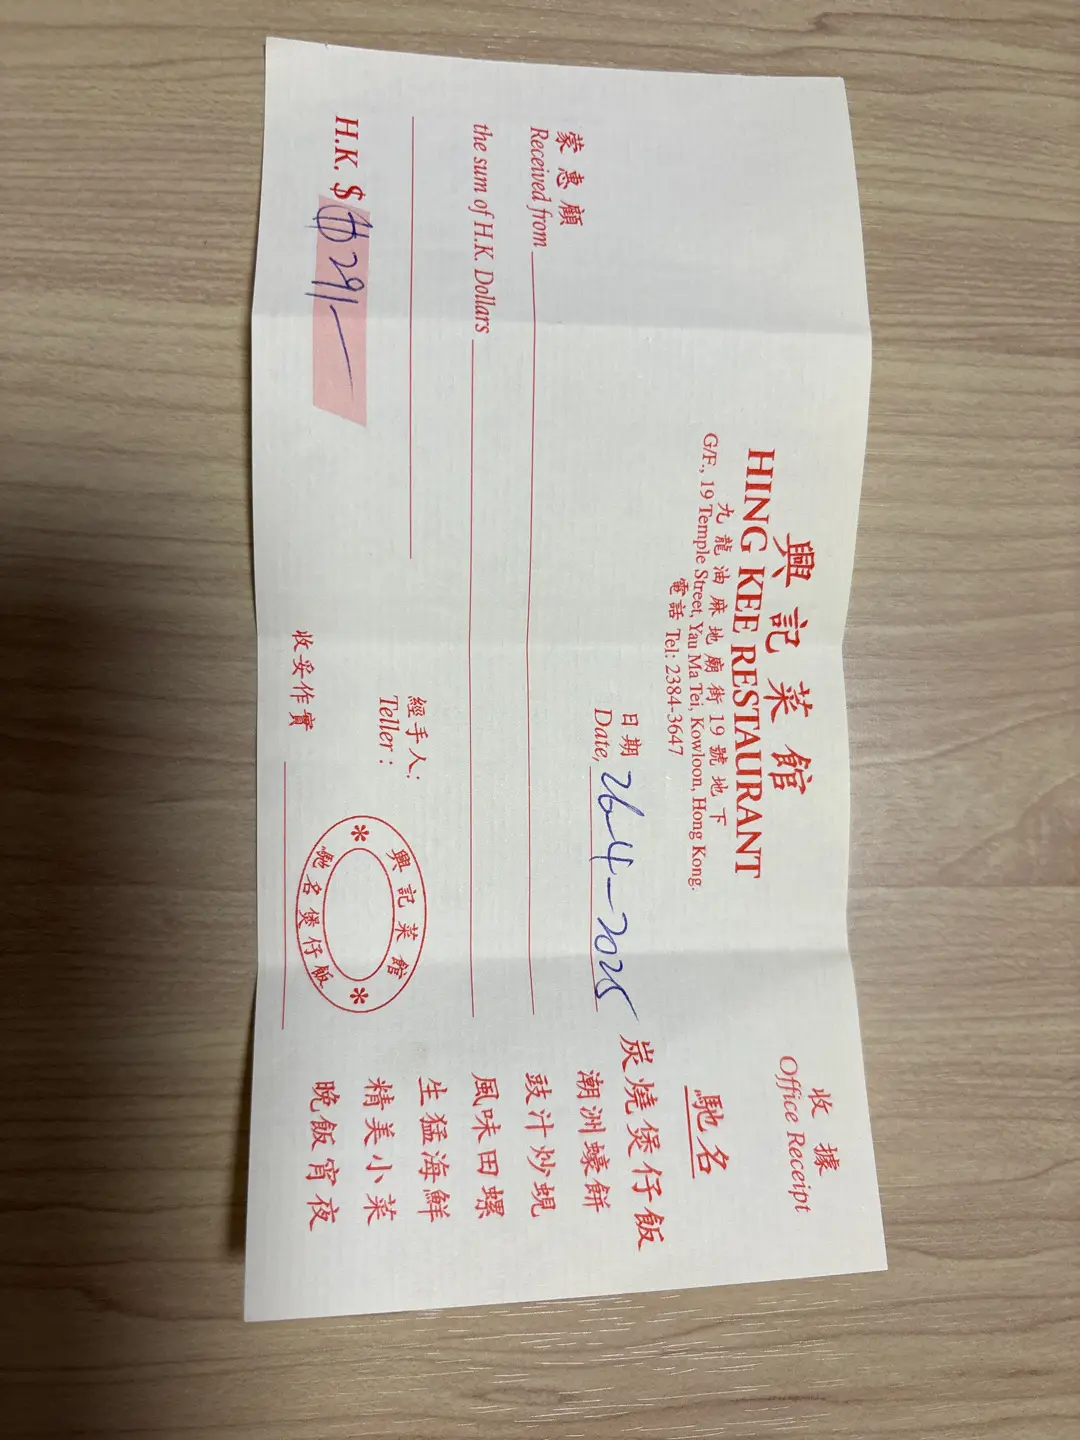 收據
Office Receipt
興記菜館
HING KEE RESTAURANT
九龍油麻地廟街19號地下
G/F., 19 Temple Street, Yau Ma Tei, Kowloon, Hong Kong.
電話 Tel: 2384-3647
馳名
炭燒煲仔飯
潮洲蠔餅
豉汁炒蜆
風味田螺
生猛海鮮
精美小菜
晚飯宵夜
日期
Date, 26-4-2025
蒙惠顧
Received from
the sum of H.K. Dollars
H.K. $ 291—
經手人:
Teller :
興記菜館
馳名煲仔飯
收妥作實